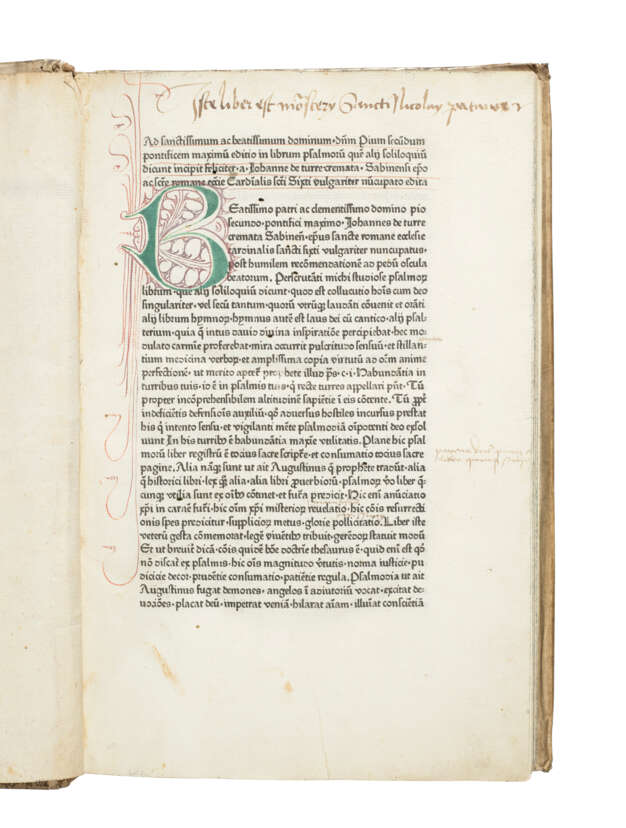 Iste liber est mōstery Sancti Nicolay
Ad sanctissimum ac beatissimum dominum· dn̄m Pium secūdum
pontificem maximū editio in librum psalmoꝝ quē alij soliloquiū
dicunt incipit feliciter· a· Iohanne de turre cremata· Sabinensi ep̄o
ac sctē romane ecctīe Cardinalis sctī Sixti vulgariter nūcupato edita
BEatissimo patri ac clementissimo domino pio
secundo· pontifici maximo· Iohannes de turre
cremata Sabineñ· ep̄us sancte romane ecclesie
Cardinalis sancti sixti vulgariter nuncupatus·
post humilem recōmendationē ad pedū oscula
beatorum· Perscrutāti michi studiose psalmoꝝ
librum· quē alij soliloquiū dicunt· quod est collucutio hoīs cum deo
singulariter· vel secū tantum· quorū vtrūqꝫ laudāti cōuenit et orāti
alij librum hymnoꝝ· hymnus autē est laus dei cū cantico· alij psal
terium· quia qᵈ intus dauid diuina inspiratiōe percipiebat· hec mo
dulato carmīe proferebat· mira occurrit pulcritudo sensuū· et stillan
tium medicina verboꝝ· et amplissima copia virtutū ad oēm anime
perfectionē· ut merito aptet· illud ps̄· c· i· Habundātia in
turribus tuis· io ē in psalmis tuis· q̄ recte turres appellari pn̄t· Tū
propter incōprehensibilem altitudinē sapiētie ī eis cōtente· Tū ꝓpt̄
indeficiētis defensiōis auxiliū· qᵈ aduersus hostiles incursus prestat
his qⁱ intento sensu· et vigilanti mēte psalmodiā oīpotenti deo exsol
uunt In his turribꝫ ē habundātia maxīe vtilitatis· Plane hic psal
moꝝ liber registrū ē tocius sacre scripᵗe· et consumatio tocius sacre
pagine· Alia nāqꝫ sunt ut ait Augustinus qᵉ prophēte tradūt· alia
qᵉ historici libri· alia libri ꝓuerbiorū· psalmoꝝ vo liber qᵉ
cunqꝫ vtilia sunt ex oībꝫ cōtinet· et fut̄a predicit· Hic eni anūciatio
xp̄i in carnē fut̄i· hic oīm xp̄i misterioꝝ reuelatio· hic cōis resurrecti
onis spes predicitur· supplicioꝝ metus· glorie pollicitatio· Liber iste
veterū gesta cōmemorat· legē viuentibꝫ tribuit· gerēdoꝝ statuit modū
Et ut breuit̄ dicā· cōis quidē bōe doctrīe thesaurus ē· quid eni est qᵈ
nō discat̄ ex psalmis· hic oīs magnitudo vt̄utis· norma iusticie· pu
dicicie decor· prudētie consumatio· patiētie regula· Psalmodia ut ait
Augustinus fugat demones· angelos ī adiutoriū vocat· excitat de·
uotōes· placat deū· impetrat veniā· hilarat aīam· illuīat consciētiā